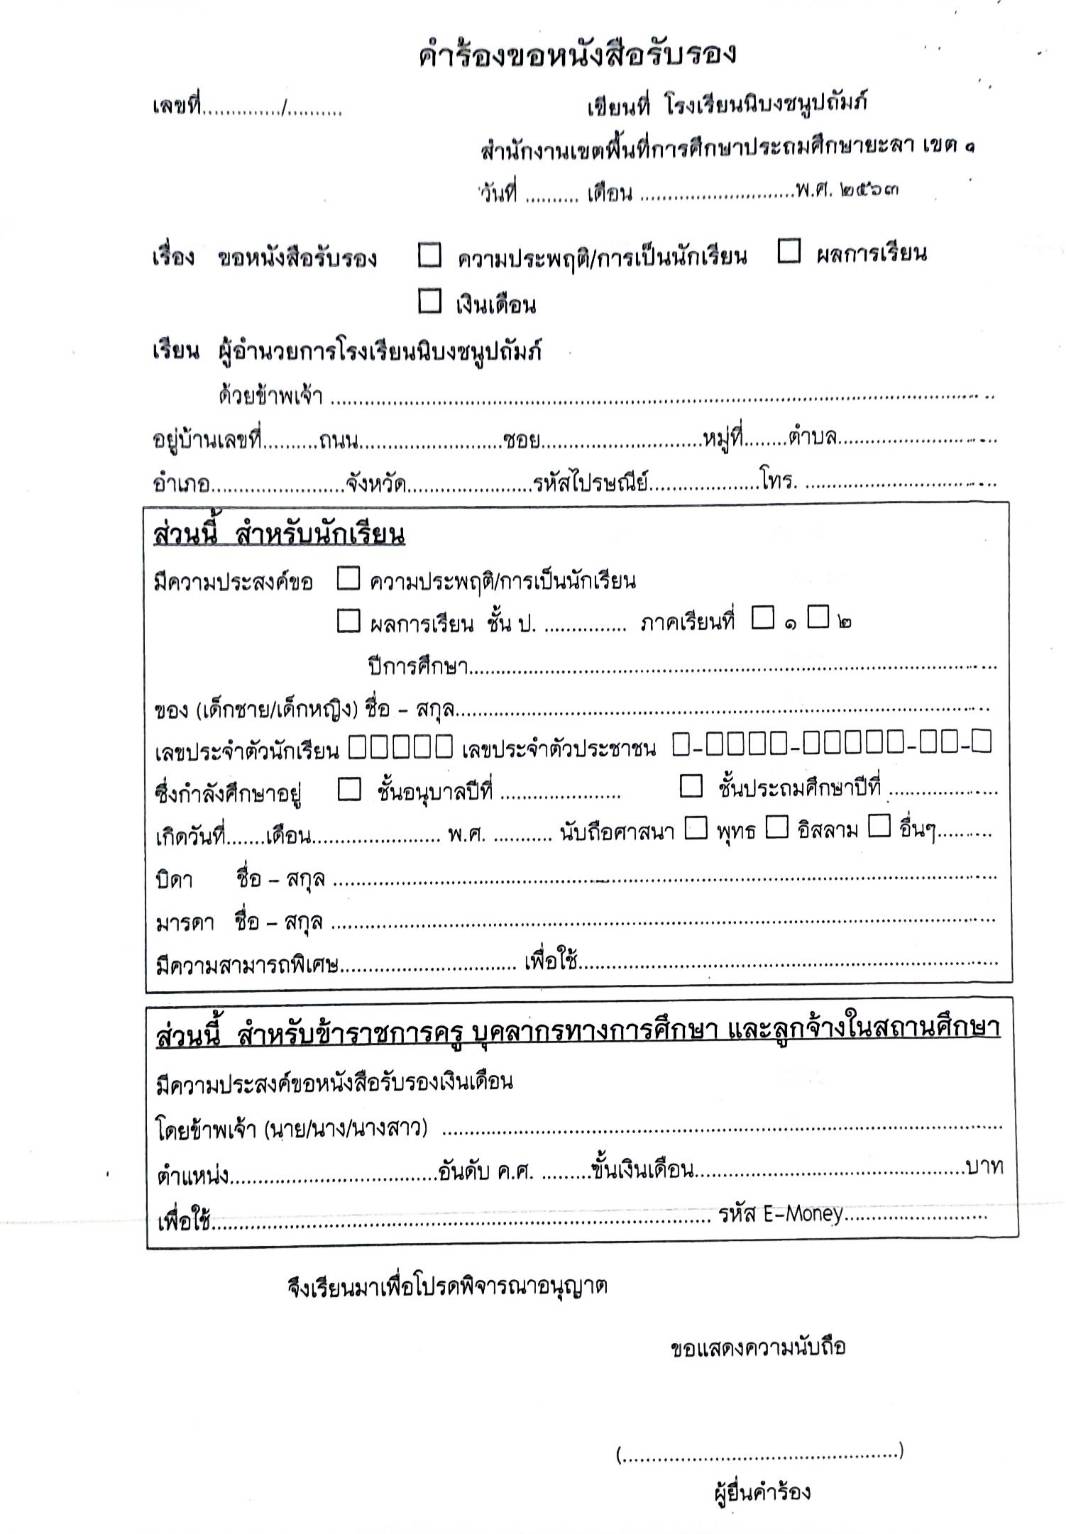 คำร้องขอหนังสือรับรอง
เลขที่............../..........
เขียนที่ โรงเรียนนิบงชนูปถัมภ์
สำนักงานเขตพื้นที่การศึกษาประถมศึกษายะลา เขต ๑
วันที่ .......... เดือน ............................พ.ศ. ๒๕๖๓
เรื่อง ขอหนังสือรับรอง ☐ ความประพฤติ/การเป็นนักเรียน ☐ ผลการเรียน
☐ เงินเดือน
เรียน ผู้อำนวยการโรงเรียนนิบงชนูปถัมภ์
ด้วยข้าพเจ้า ..............................................................................................................
อยู่บ้านเลขที่..........ถนน..........................ซอย.............................หมู่ที่........ตำบล.............................
อำเภอ........................จังหวัด.......................รหัสไปรษณีย์....................โทร. ...................................
ส่วนนี้ สำหรับนักเรียน
มีความประสงค์ขอ ☐ ความประพฤติ/การเป็นนักเรียน
☐ ผลการเรียน ชั้น ป. ............... ภาคเรียนที่ ☐ ๑ ☐ ๒
ปีการศึกษา...............................................................................................
ของ (เด็กชาย/เด็กหญิง) ชื่อ – สกุล...............................................................................................
เลขประจำตัวนักเรียน ☐☐☐☐☐ เลขประจำตัวประชาชน ☐-☐☐☐☐-☐☐☐☐☐-☐☐-☐
ซึ่งกำลังศึกษาอยู่ ☐ ชั้นอนุบาลปีที่ ...................... ☐ ชั้นประถมศึกษาปีที่ ....................
เกิดวันที่.......เดือน....................... พ.ศ. ........... นับถือศาสนา ☐ พุทธ ☐ อิสลาม ☐ อื่นๆ..........
บิดา ชื่อ – สกุล ......................................................................................................................
มารดา ชื่อ – สกุล ......................................................................................................................
มีความสามารถพิเศษ................................ เพื่อใช้...........................................................................
ส่วนนี้ สำหรับข้าราชการครู บุคลากรทางการศึกษา และลูกจ้างในสถานศึกษา
มีความประสงค์ขอหนังสือรับรองเงินเดือน
โดยข้าพเจ้า (นาย/นาง/นางสาว) ....................................................................................................
ตำแหน่ง.....................................อันดับ ค.ศ. .........ขั้นเงินเดือน................................................บาท
เพื่อใช้......................................................................................... รหัส E-Money..........................
จึงเรียนมาเพื่อโปรดพิจารณาอนุญาต
ขอแสดงความนับถือ
(..................................................)
ผู้ยื่นคำร้อง